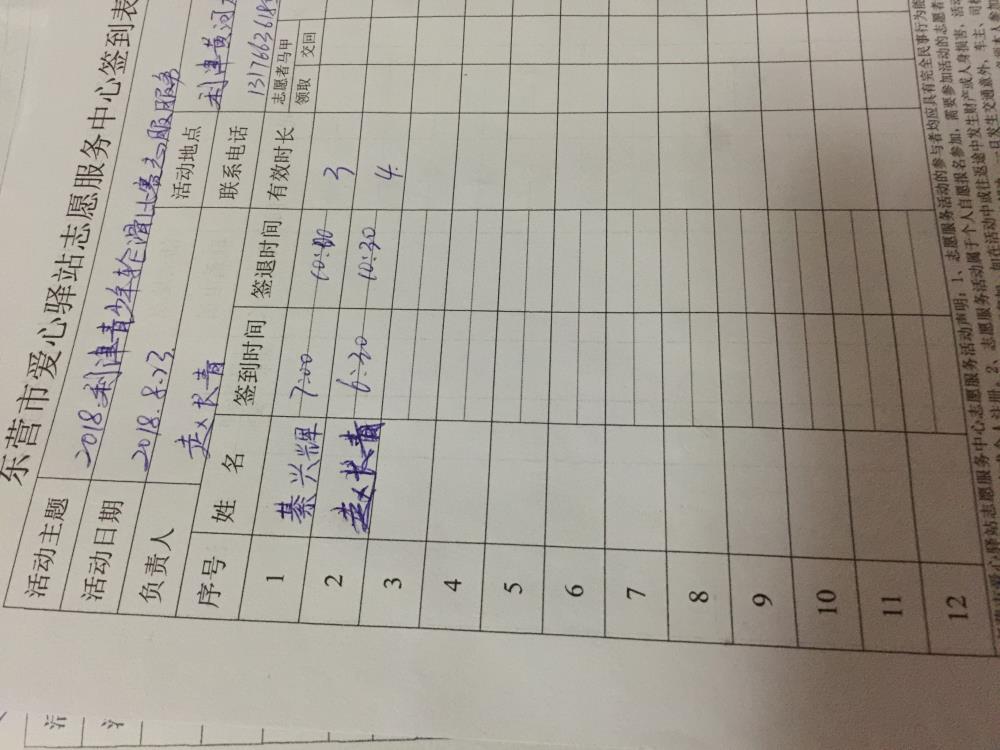 东营市爱心驿站志愿服务中心签到表
活动主题 2018利津青少年轮滑比赛志愿服务
活动日期 2018.8.23 活动地点 利津黄河
负责人 赵长青 联系电话 1317663618
序号 姓 名 签到时间 签退时间 有效时长 志愿者马甲
领取 交回
1 綦兴辉 7:00 10:00 3
2 赵长青 6:30 10:30 4
3
4
5
6
7
8
9
10
11
12
驿站志愿服务中心志愿服务活动声明：1、志愿服务活动的参与者均应具有完全民事行为能
2、志愿服务活动属于个人自愿报名参加，需要参加活动的志愿者
如在活动中或往返途中发生财产或人身损害，活动
一旦发生交通意外，车主、司机